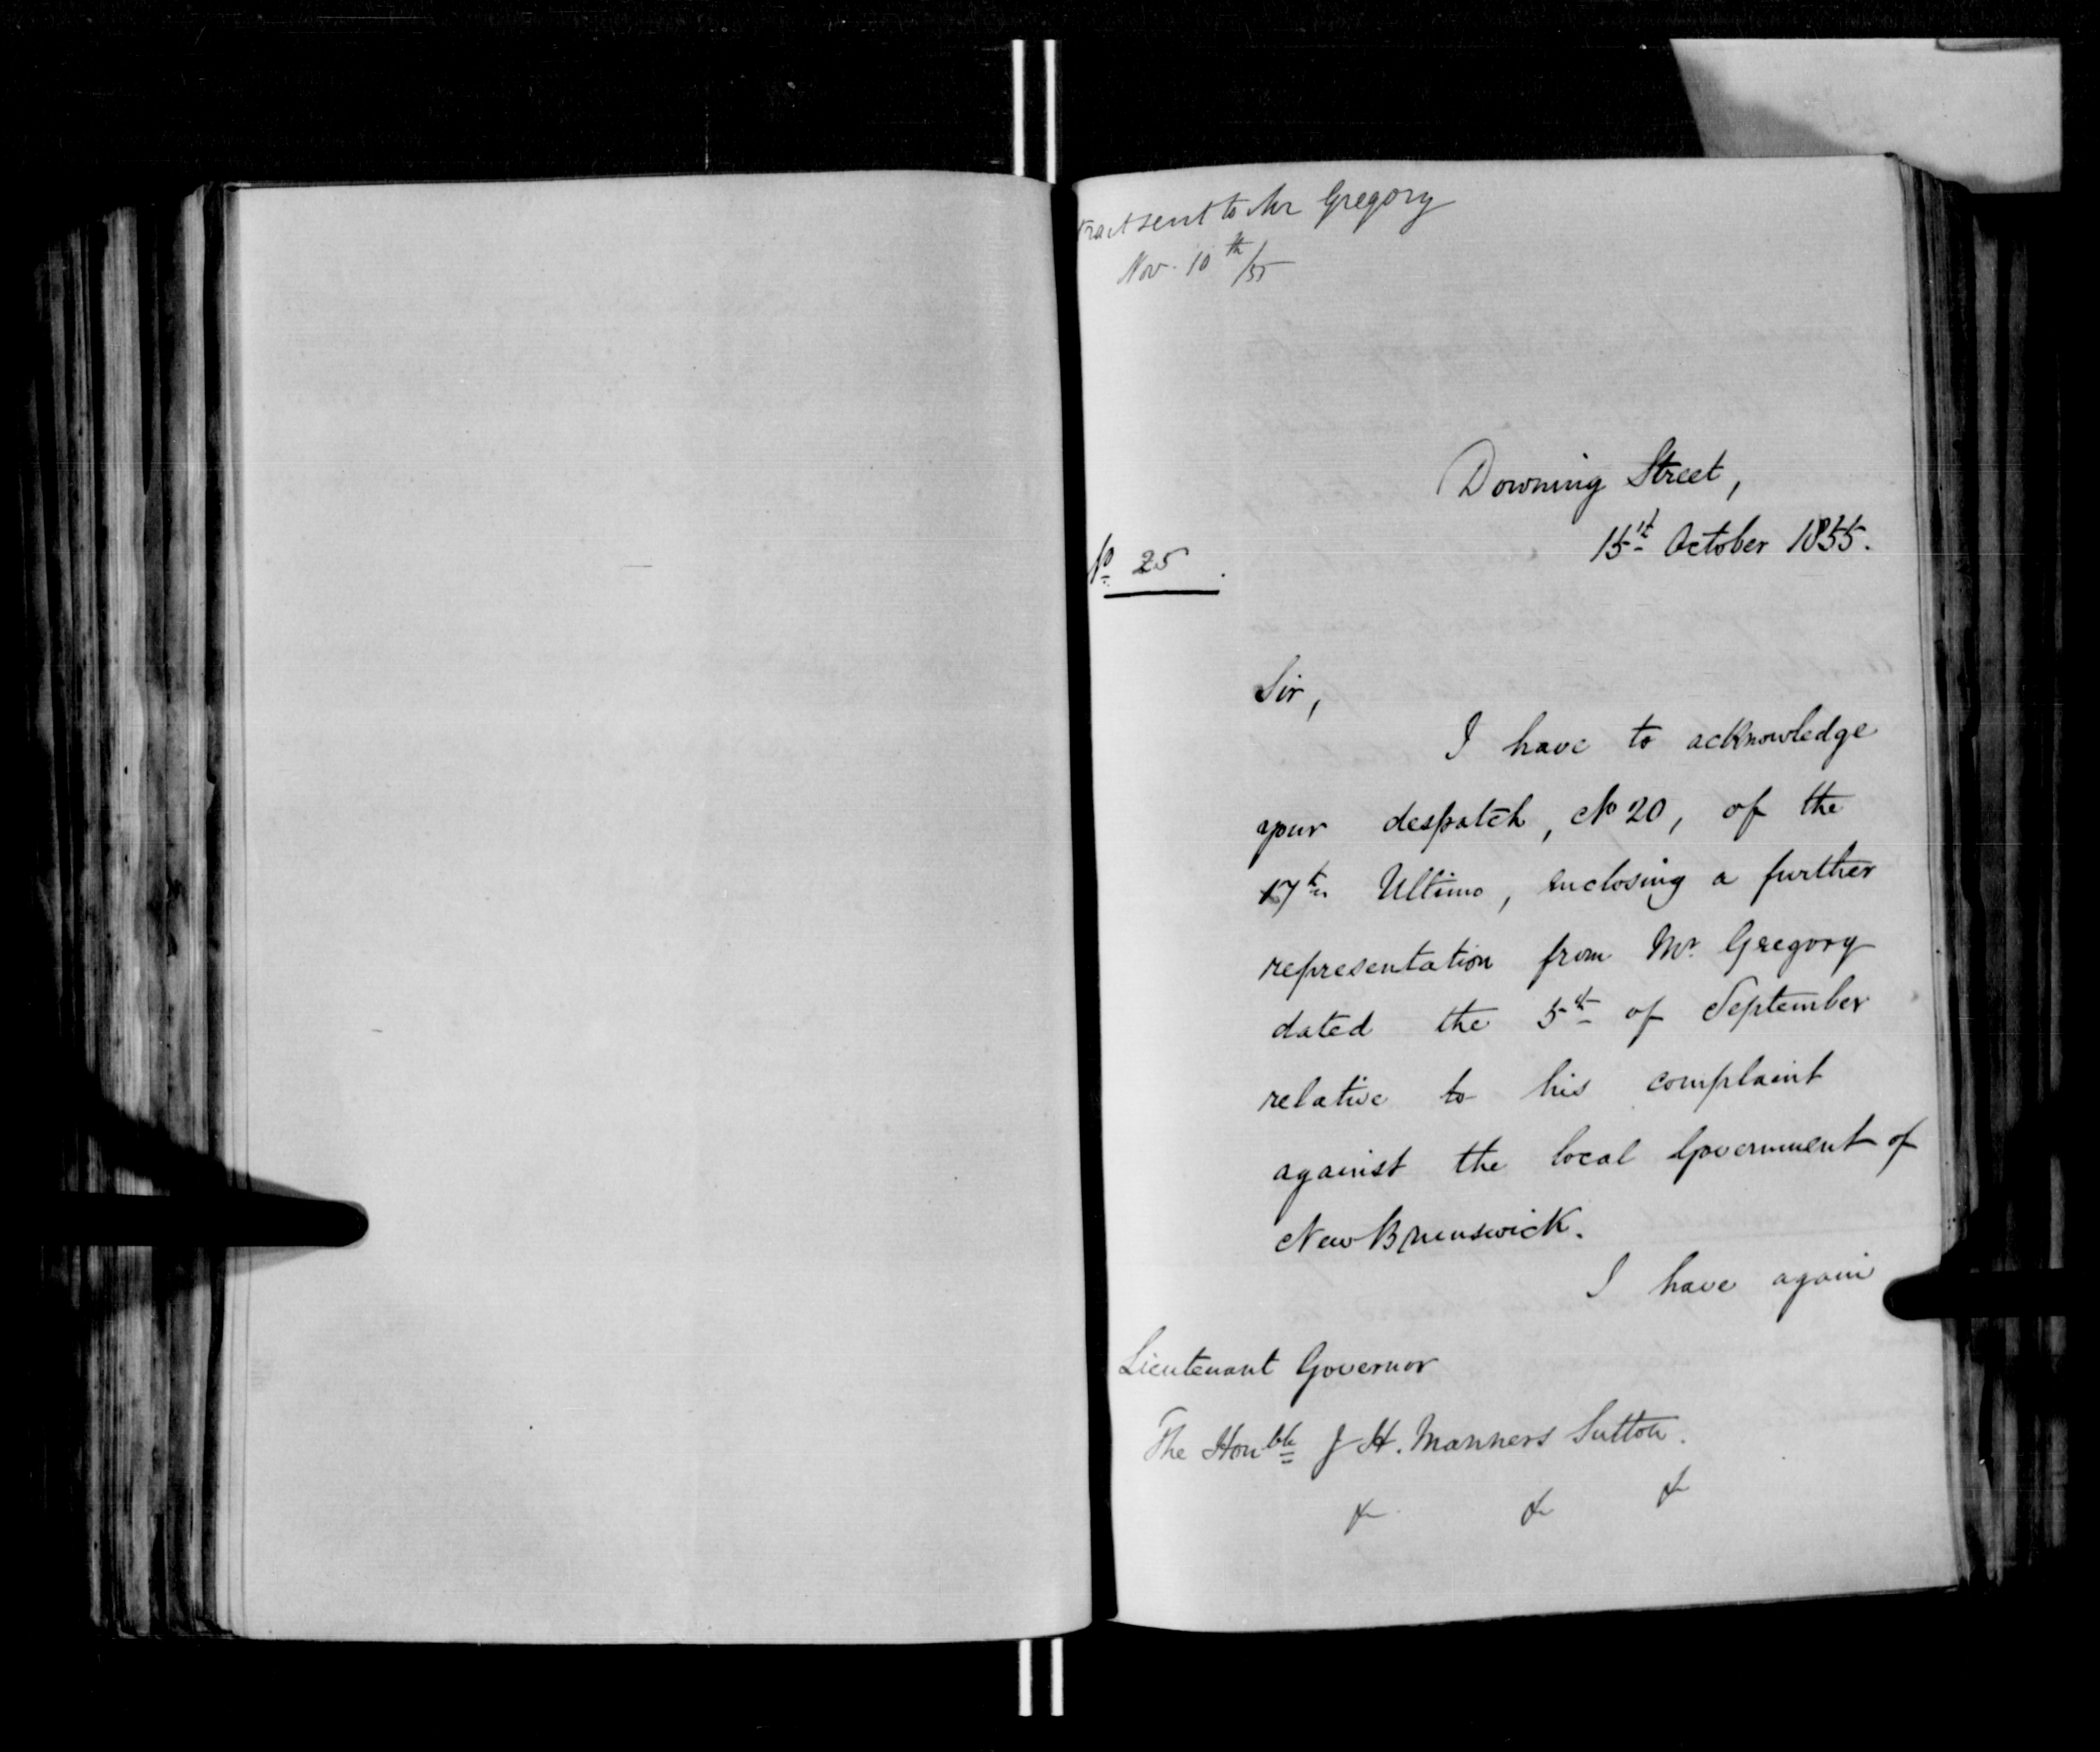 tract sent to Mr Gregory
Nov. 10th/55
Downing Street,
15th October 1855.
No 25.
Sir,
I have to acknowledge
your despatch, No 20, of the
17th Ultimo, enclosing a further
representation from Mr. Gregory
dated the 5th of September
relative to his complaint
against the local Government of
New Brunswick.
I have again
Lieutenant Governor
The Honble J H. Manners Sutton.
& & &